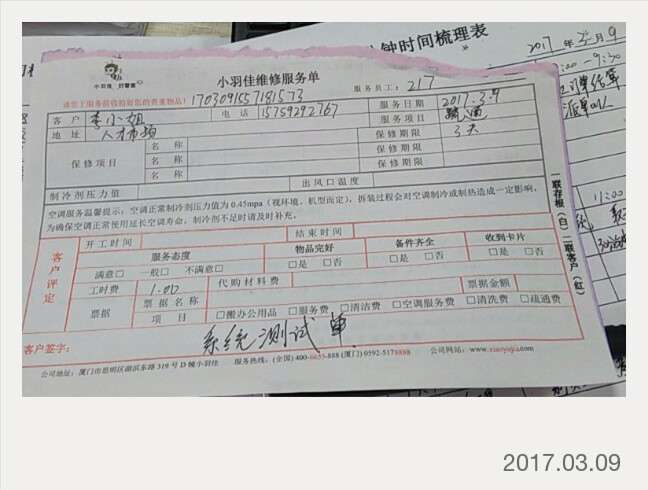 钟时间梳理表
2017年3月9
小羽佳 好管家
小羽佳维修服务单
服务员工:217
请您于服务前收拾好您的贵重物品!1703091557181573
客户 李小姐 电话 15759292767 服务日期 2017.3.9
地址 人才市场 服务项目
保修项目 名称 保修期限 3天
名称 保修期限
名称 保修期限
制冷剂压力值 出风口温度
空调服务温馨提示:空调正常制冷剂压力值为0.45mpa(视环境、机型而定),拆装过程会对空调制冷或制热造成一定影响,
为确保空调正常使用延长空调寿命,制冷剂不足时请及时补充。
一联存根(白)二联客户(红)
客户评定
开工时间 结束时间
服务态度 物品完好 备件齐全 收到卡片
满意□ 一般□ 不满意□ □是 □否 □是 □否 □是 □否
工时费 1.00 代购材料费
票据 票据名称 票据金额
项目 □搬办公用品 □服务费 □清洁费 □空调服务费 □清洗费 □疏通费
客户签字: 系统测试单
公司地址:厦门市思明区湖滨东路319号D幢小羽佳 服务热线:(全国)400-6655-888 (厦门)0592-5178888 公司网站:www.xiaoyujia.com
11:00
2017.03.09